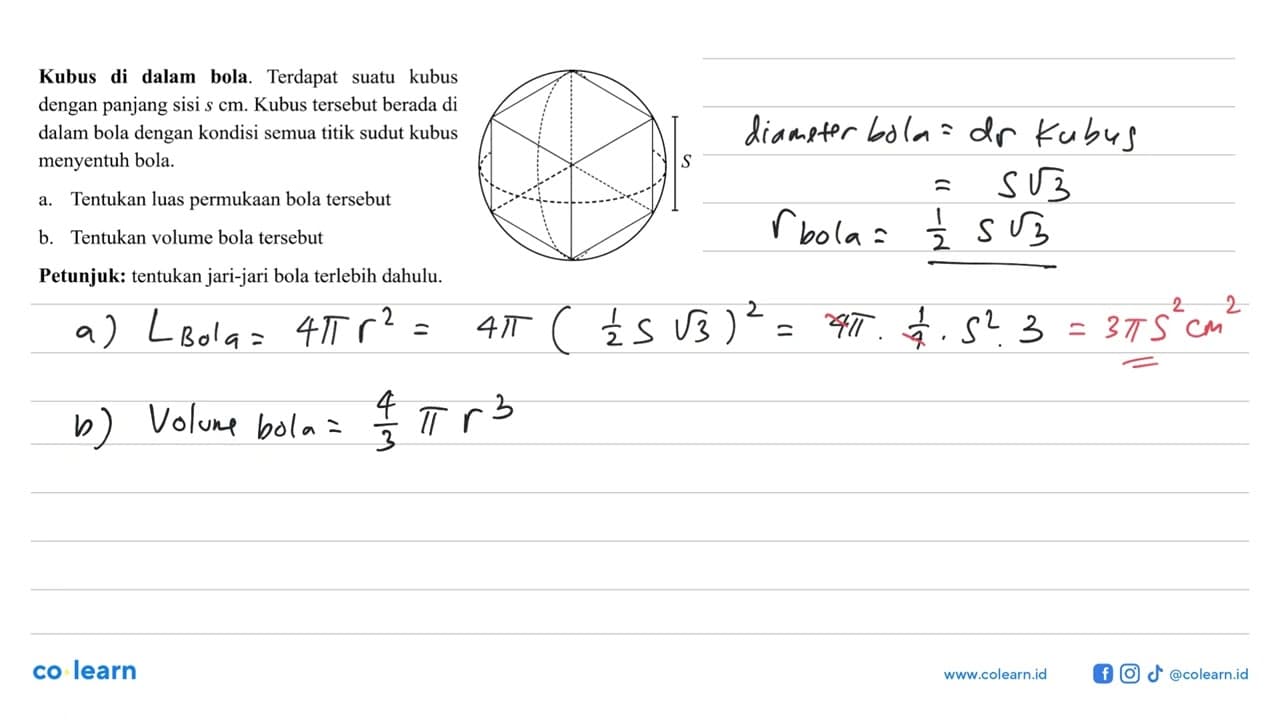 Kubus di dalam bola. Terdapat suatu kubus
dengan panjang sisi s cm. Kubus tersebut berada di
dalam bola dengan kondisi semua titik sudut kubus
menyentuh bola.
a. Tentukan luas permukaan bola tersebut
b. Tentukan volume bola tersebut
Petunjuk: tentukan jari-jari bola terlebih dahulu.
S
diameter bola = dr Kubus
= S√3
r bola = 1/2 S√3
a) L Bola = 4πr² = 4π (1/2 S √3)² = 4π . 1/4 . S² . 3 = 3πS² cm²
b) Volume bola = 4/3 π r³
co learn
www.colearn.id
@colearn.id